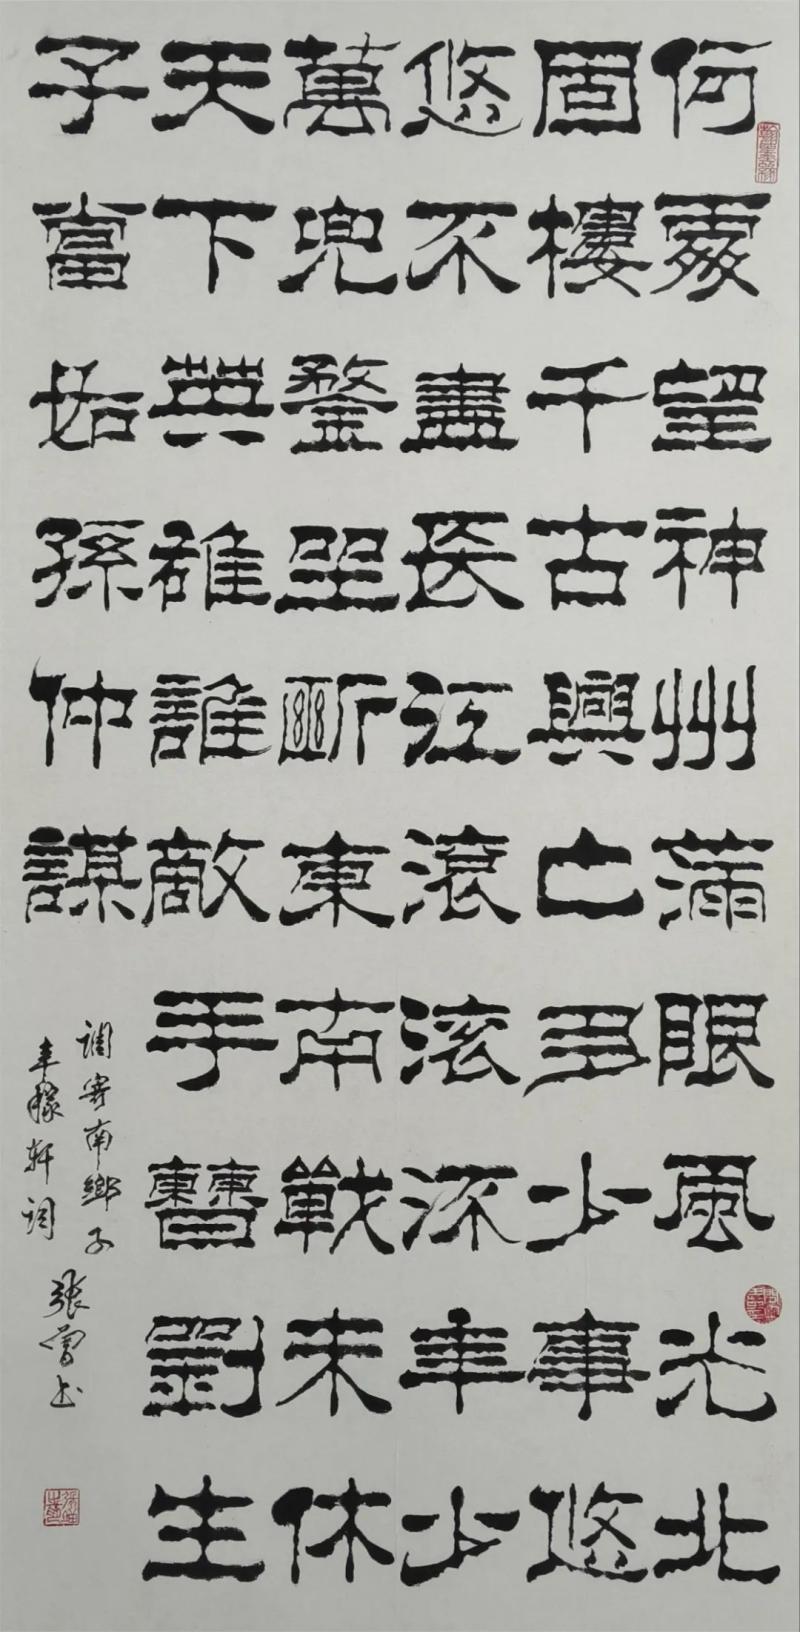 何處望神州滿眼風光北
固樓千古興亡多少事悠
悠不盡長江滾滾流年少
萬兜鍪坐斷東南戰未休
天下英雄誰敵手曹劉生
子當如孫仲謀
调寄南鄉子
辛稼轩词 張书